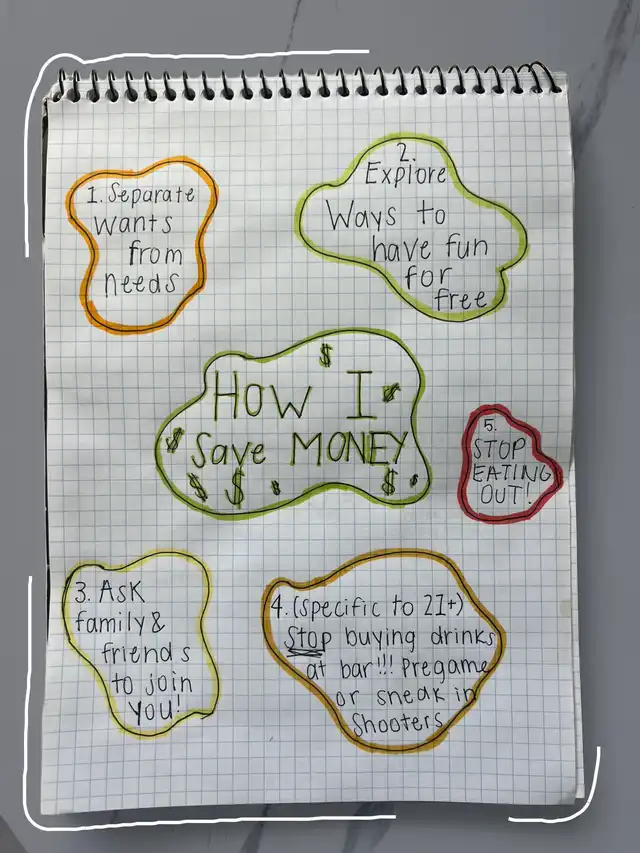 1. Separate
Wants
from
needs
2.
Explore
Ways to
have fun
for
free
HOW I
Save MONEY
5.
STOP
EATING
OUT!
3. Ask
family &
friends
to join
you!
4. (specific to 21+)
Stop buying drinks
at bar!!! Pregame
or sneak in
Shooters